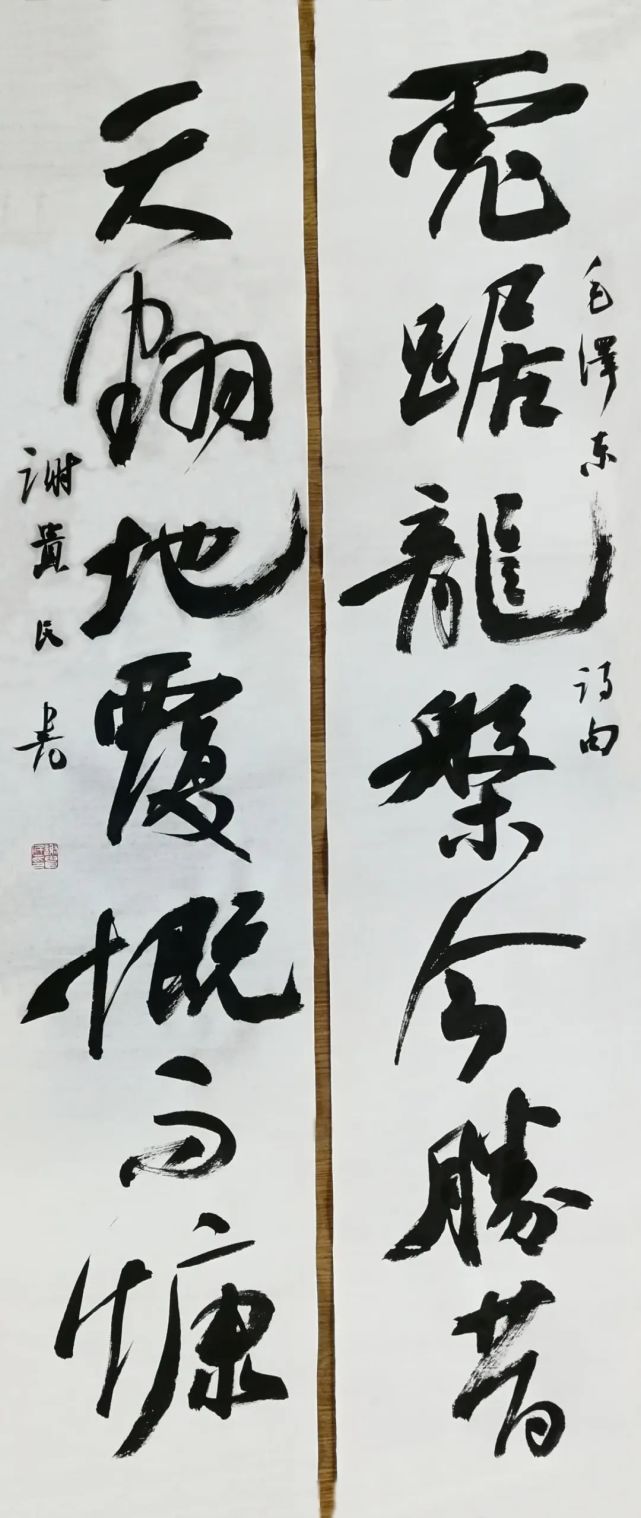 毛澤东诗句
虎踞龍槃今勝昔
天翻地覆慨而慷
谢貴民書